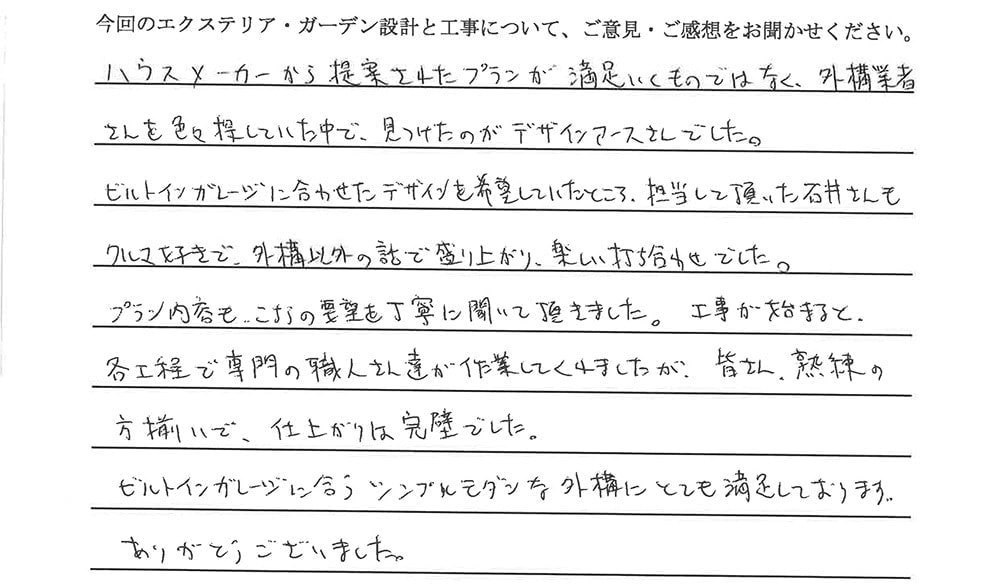 今回のエクステリア・ガーデン設計と工事について、ご意見・ご感想をお聞かせください。
ハウスメーカーから提案されたプランが満足いくものではなく、外構業者
さんを色々探していた中で、見つけたのがデザインアースさんでした。
ビルトインガレージに合わせたデザインを希望していたところ、担当して頂いた石井さんも
クルマ好きで、外構以外の話で盛り上がり、楽しい打ち合わせでした。
プラン内容も、こちらの要望を丁寧に聞いて頂きました。 工事が始まると、
各工程で専門の職人さん達が作業してくれましたが、皆さん、熟練の
方揃いで、仕上がりは完璧でした。
ビルトインガレージに合うシンプルモダンな外構にとても満足しております。
ありがとうございました。